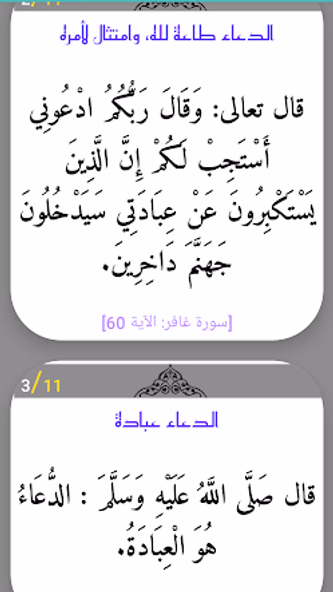 2/11
الدعاء طاعة لله، وامتثال لأمره
قال تعالى: وَقَالَ رَبُّكُمُ ادْعُونِي
أَسْتَجِبْ لَكُمْ إِنَّ الَّذِينَ
يَسْتَكْبِرُونَ عَنْ عِبَادَتِي سَيَدْخُلُونَ
جَهَنَّمَ دَاخِرِينَ.
[سورة غافر: الآية 60]
3/11
الدعاء عبادة
قال صَلَّى اللَّهُ عَلَيْهِ وَسَلَّمَ : الدُّعَاءُ
هُوَ الْعِبَادَةُ.